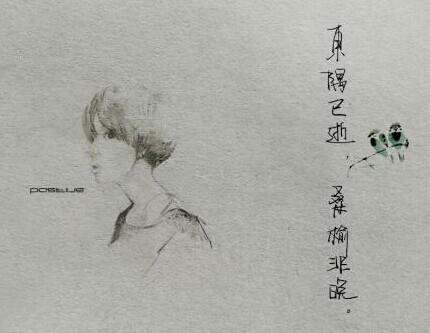 東隅已逝，桑榆非晚。